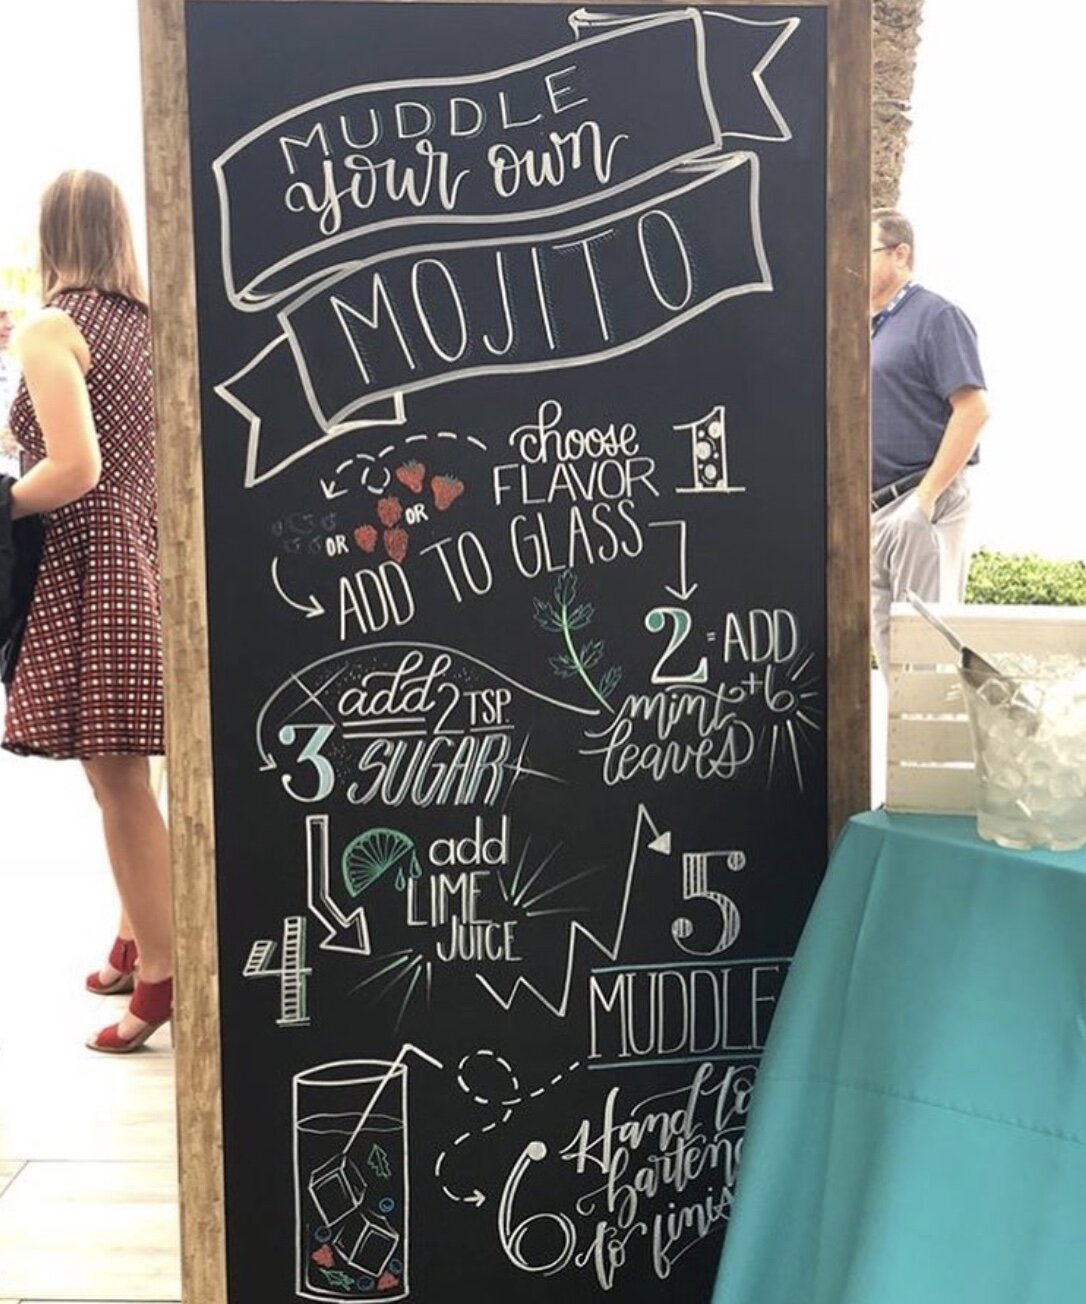 MUDDLE
your own
MOJITO
1
choose
FLAVOR
OR
OR
ADD TO GLASS
2 ADD
+6
mint
leaves
3
add 2 TSP.
SUGAR
4
add
LIME
JUICE
5
MUDDLE
6
Hand to
to